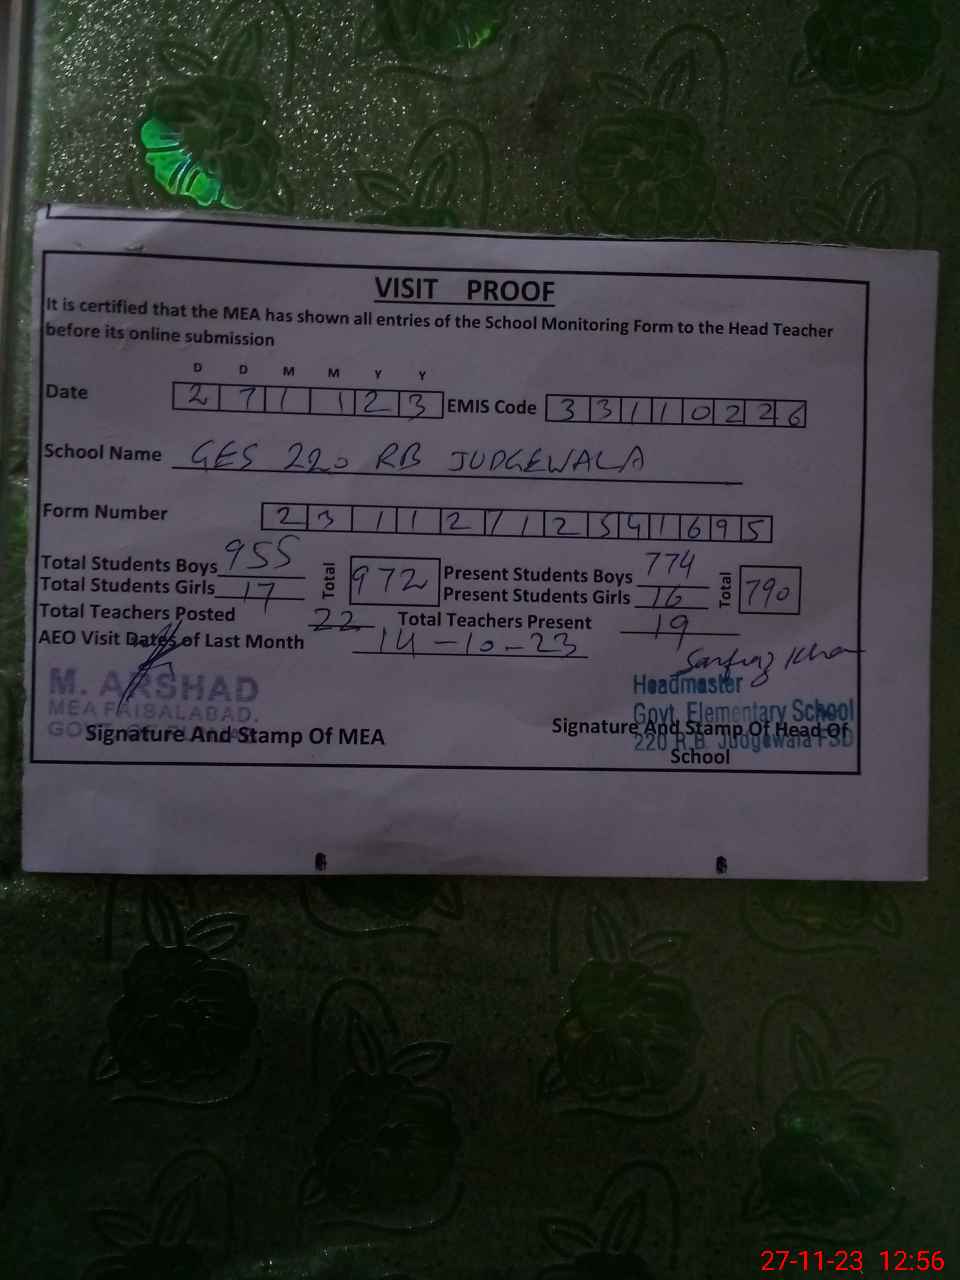 VISIT PROOF
It is certified that the MEA has shown all entries of the School Monitoring Form to the Head Teacher
before its online submission
D D M M Y Y
Date 2 7 1 1 2 3 EMIS Code 3 3 1 1 0 2 2 6
School Name GES 220 RB JUDGEWALA
Form Number 2 3 1 1 2 7 1 2 5 4 1 6 9 5
Total Students Boys 955 Total 972 Present Students Boys 774 Total 790
Total Students Girls 17 Present Students Girls 16
Total Teachers Posted 22 Total Teachers Present 19
AEO Visit Dates of Last Month 14-10-23
Sarfraz Khan
M. ARSHAD
MEA FAISALABAD.
Headmaster
Govt. Elementary School
220 R.B. Judgewala FSD
Signature And Stamp Of MEA
Signature And Stamp Of Head Of
School
27-11-23 12:56